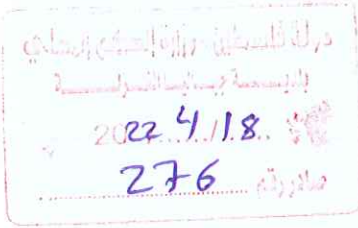 دولة فلسطين - وزارة الحكم المحلي
2022/4/18
صادر رقم 276